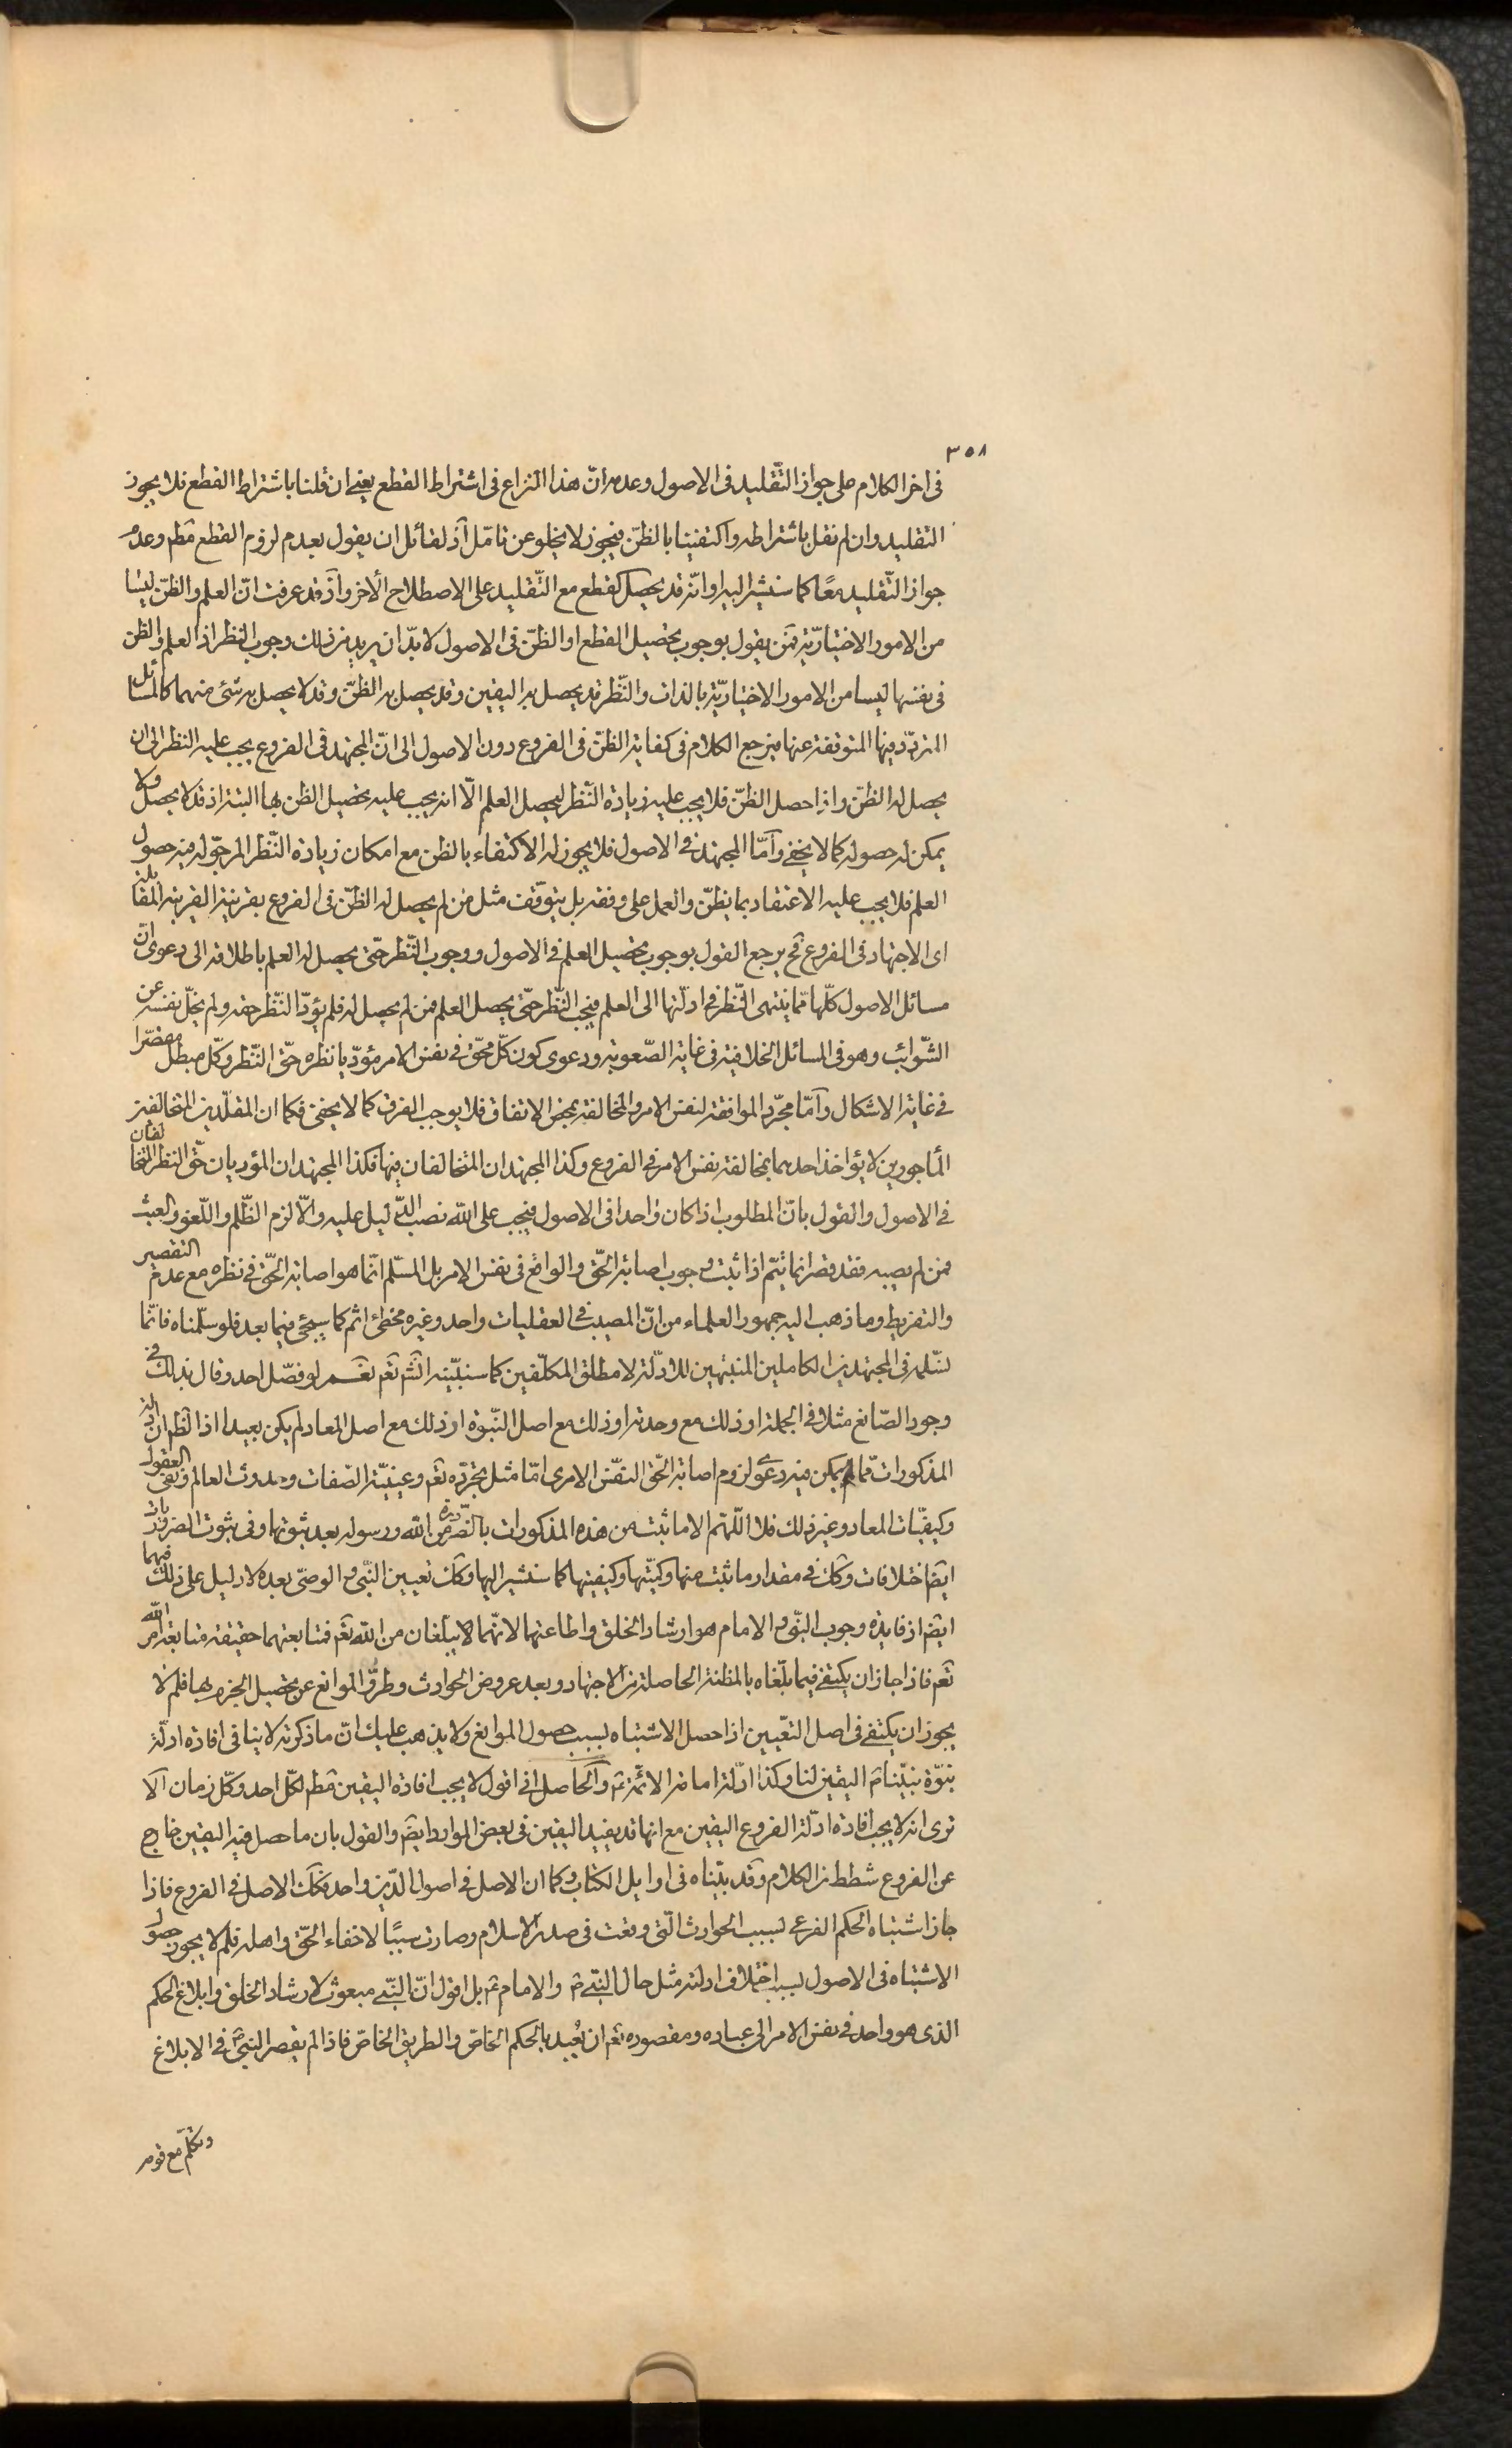 ٣٥٨
فى اخر الكلام على جواز التّقليد فى الاصول وعدمه انّ هذا النزاع فى اشتراط القطع يعنى ان قلنا باشتراط القطع فلا يجوز
التقليد وان لم نقل باشتراطه واكتفينا بالظنّ فيجوز لا يخلو عن تامّل اذ لقائل ان يقول بعدم لزوم القطع مطم وعدم
جواز التّقليد معًا كما سنشير اليه او انّه قد يحصل القطع مع التّقليد على الاصطلاح الاخر واذ قد عرفت انّ العلم والظنّ ليسا
من الامور الاختياريّة فمن يقول بوجوب تحصيل القطع او الظنّ فى الاصول لا بدّ ان يريد من ذلك وجوب النظر اذ العلم والظن
فى نفسها ليسا من الامور الاختياريّة بالذات والنّظر قد يحصل به اليقين وقد يحصل به الظنّ وقد لا يحصل به شئ منهما كالمسائل
المتردّد فيها المتوقفة عنها فيرجع الكلام فى كفاية الظنّ فى الفروع دون الاصول الى انّ المجتهد فى الفروع يجب عليه النظر الى ان
يحصل له الظنّ واذا حصل الظنّ فلا يجب عليه زيادة النّظر ليحصل العلم الّا انه يجب عليه تحصيل الظن بها البتة اذ قد لا يحصل ولا
يمكن له حصوله كما لا يخفى وامّا المجتهد فى الاصول فلا يجوز له الاكتفاء بالظن مع امكان زيادة النّظر المرجوّ له فيه حصول
العلم فلا يجب عليه الاعتقاد بما يظنّ والعمل على وفقه بل يتوقّف مثل من لم يحصل له الظنّ فى الفروع بقرينة القرينة المقابلة
اى الاجتهاد فى الفروع فح يرجع القول بوجوب تحصيل العلم فى الاصول ووجوب النّظر حتّى يحصل له العلم باطلاقه الى دعوى انّ
مسائل الاصول كلّها ممّا ينتهى النّظر فى ادلّتها الى العلم فيجب النّظر حتّى يحصل العلم فمن لم يحصل له فلم يؤدّ النّظر حقه ولم يخلّ نفسه عن
الشّوائب وهو فى المسائل الخلافية فى غاية الصّعوبة ودعوى كون كلّ محقّ فى نفس الامر مؤدّيا نظره حقّ النّظر وكلّ مبطل مقصّرا
فى غاية الاشكال وامّا مجرّد الموافقة لنفس الامر والمخالفة بمحض الاتفاق فلا يوجب الفرق كما لا يخفى فكما ان المقلّدين المتخالفين
المأجورين لا يؤاخذ احدهما بمخالفة نفس الامر فى الفروع وكذا المجتهدان المتخالفان فيها فكذا المجتهدان المؤديان حقّ النظر المتخالفان
فى الاصول والقول بانّ المطلوب اذا كان واحدا فى الاصول فيجب على الله نصب الدّليل عليه والّا لزم الظّلم واللّغو والعبث
فمن لم يصبه فقد قصر انما يتمّ اذا ثبت وجوب اصابة الحقّ والواقع فى نفس الامر بل المسلّم انّما هو اصابة الحقّ فى نظره مع عدم التقصير
والتفريط وما ذهب اليه جمهور العلماء من انّ المصيب فى العقليات واحد وغيره مخطئ اثم كما سيجئ فيما بعد فلو سلّمناه فانّما
نسّلمه فى المجتهدين الكاملين المنتبهين للادّلة لا مطلق المكلّفين كما سنبيّنه انشم تعم نعم لو فصّل احد وقال بذلك فى
وجود الصّانع مثلا فى الجملة او ذلك مع وحدته او ذلك مع اصل النّبوة او ذلك مع اصل المعاد لم يكن بعيدا اذ الظم ان
المذكورات ممّا يمكن فيه دعوى لزوم اصابة الحقّ النفس الامرى امّا مثل تجرّده تعم وعينيّة الصّفات وحدوث العالم ونفى العقول
وكيفيّات المعاد وغير ذلك فلا اللّهمّ الا ما ثبت من هذه المذكورات بالضّرورة من الله ورسوله بعد ثبوتها وفى ثبوت الضروريات
ايضا خلافات وكك فى مقدار ما ثبت منها وكيّتها وكيفيتها كما سنشير اليها وكك تعيين النّبى والوصىّ بعده لا دليل على ذلك فيهما
ايضا اذ فايدة وجوب النّبى والامام هو ارشاد الخلق واطاعتها لانّهما لا يبلّغان من الله تعم فمتابعتهما حقيقة متابعة امر الله
تعم فاذا جاز ان يكتفى فيما بلّغاه بالمظنة الحاصلة من الاجتهاد وبعد عروض الحوادث وطروّ الموانع عن تحصيل الجزم بها فلم لا
يجوز ان يكتفى فى اصل التعيين اذا حصل الاشتباه بسبب حصول الموانع ولا يذهب عليك انّ ما ذكرته لا ينافى افادة ادلّة
نبوّة نبيّنا م اليقين لنا وكذا ادّلة امامة الائمّة ع والحاصل انى اقول لا يجب افادة اليقين مطم لكلّ احد وكلّ زمان الا
ترى انه لا يجب افادة ادلّة الفروع اليقين مع انها قد يفيد اليقين فى بعض الموارد ايضا والقول بان ما حصل فيه اليقين خارج
عن الفروع شطط من الكلام وقد بيّناه فى اوايل الكتاب وكما ان الاصل فى اصول الدّين واحد فكك الاصل فى الفروع فاذا
جاز اشتباه الحكم الفرعى بسبب الحوادث الّتى وقعت فى صدر الاسلام وصارت سببًا لاخفاء الحقّ واهله فلم لا يجوز حصول
الاشتباه فى الاصول بسبب اختلاف ادلته مثل حال النبّى م والامام ع بل اقول انّ النبّى مبعوث لارشاد الخلق وابلاغ الحكم
الذى هو واحد فى نفس الامر الى عباده ومقصوده تعم ان يُعبد بالحكم الخاصّ والطريق الخاصّ فاذا لم يقصر النبىّ فى الابلاغ
وتكلّم مع قومه